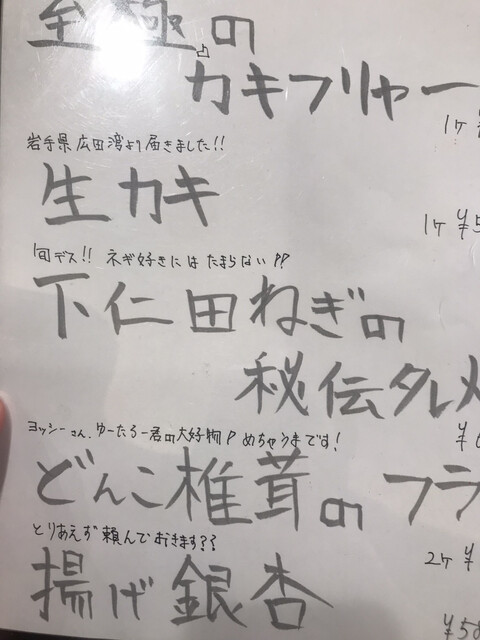 至極の
カキフリャー
1ヶ
岩手県広田湾より届きました!!
生カキ
1ヶ ¥5
旬デス!! ネギ好きにはたまらない??
下仁田ねぎの
秘伝タレ
¥
ヨッシーさん、ゆーたろー君の大好物♪めちゃうまです!
どんこ椎茸のフラ
2ヶ ¥
とりあえず頼んでおきます??
揚げ銀杏
¥58